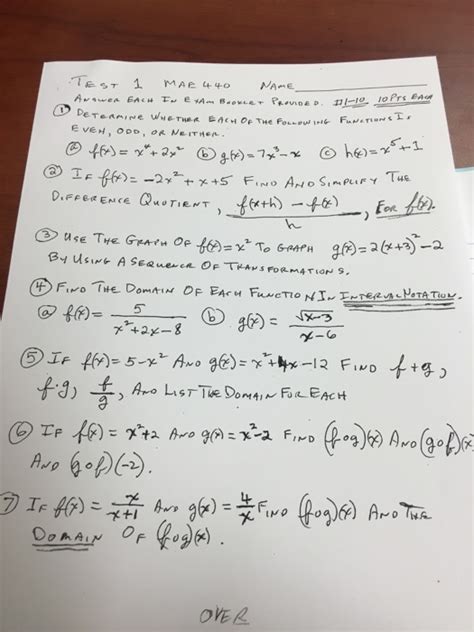 TEST 1 MAE 440 NAME
ANSWER EACH IN EXAM BOOKLET PROVIDED. #1-10 10 PTS EACH
① DETERMINE WHETHER EACH OF THE FOLLOWING FUNCTIONS IS
EVEN, ODD, OR NEITHER.
ⓐ f(x) = x⁴ + 2x² ⓑ g(x) = 7x³ - x ⓒ h(x) = x⁵ + 1
② IF f(x) = -2x² + x + 5 FIND AND SIMPLIFY THE
DIFFERENCE QUOTIENT, (f(x+h) - f(x))/h, FOR f(x).
③ USE THE GRAPH OF f(x) = x² TO GRAPH g(x) = 2(x+3)² - 2
BY USING A SEQUENCE OF TRANSFORMATIONS.
④ FIND THE DOMAIN OF EACH FUNCTION IN INTERVAL NOTATION.
ⓐ f(x) = 5/(x² + 2x - 8) ⓑ g(x) = √(x-3)/(x-6)
⑤ IF f(x) = 5 - x² AND g(x) = x² + 4x - 12 FIND f + g,
f·g, f/g, AND LIST THE DOMAIN FOR EACH
⑥ IF f(x) = x² + 2 AND g(x) = x² - 2 FIND (f∘g)(x) AND (g∘f)(x)
AND (g∘f)(-2).
⑦ IF f(x) = x/(x+1) AND g(x) = 4/x FIND (f∘g)(x) AND THE
DOMAIN OF (f∘g)(x).
OVER